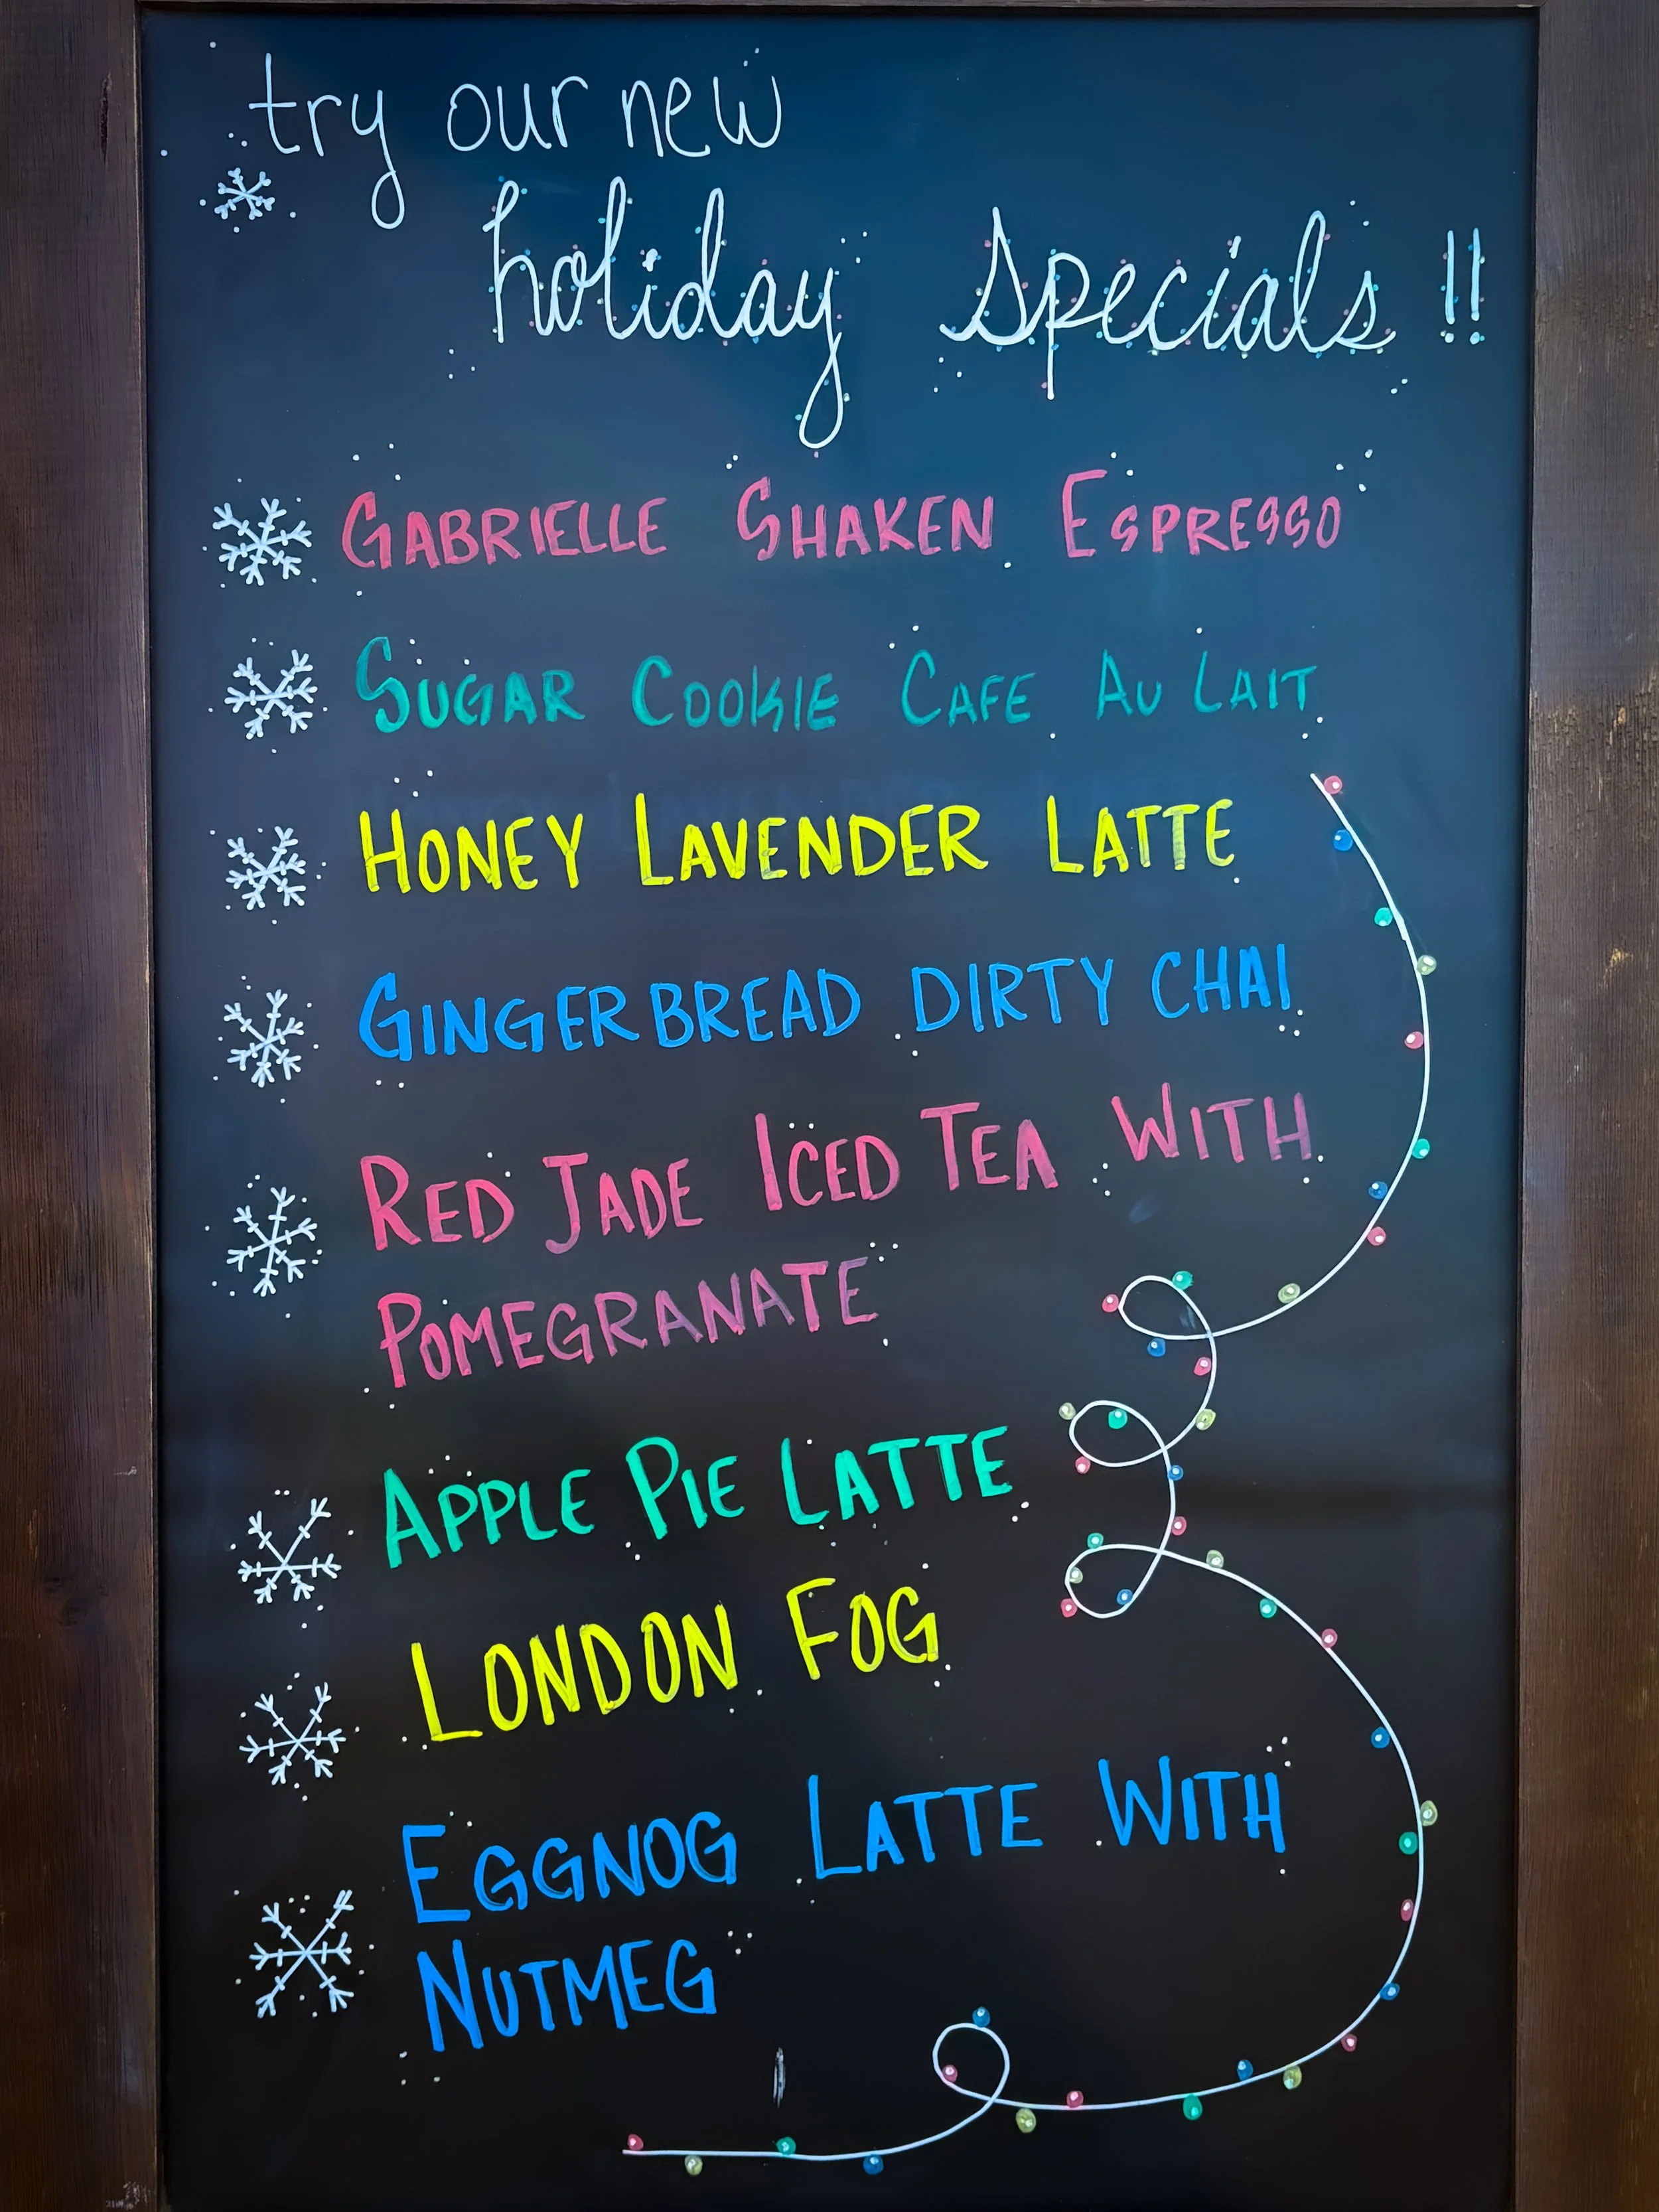 try our new
holiday specials !!
GABRIELLE SHAKEN ESPRESSO
SUGAR COOKIE CAFE AU LAIT
HONEY LAVENDER LATTE
GINGERBREAD DIRTY CHAI
RED JADE ICED TEA WITH
POMEGRANATE
APPLE PIE LATTE
LONDON FOG
EGGNOG LATTE WITH
NUTMEG